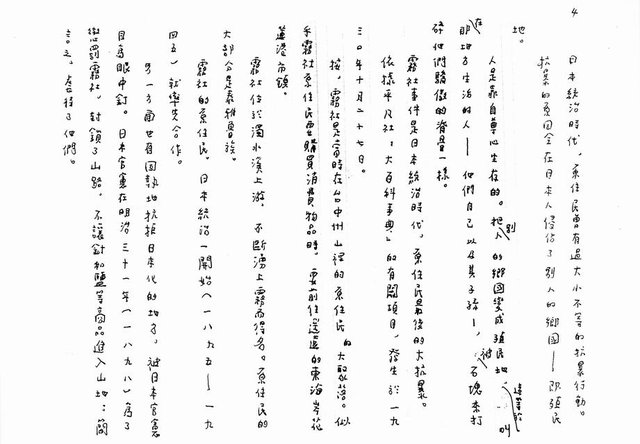 4
日本統治時代，原住民曾有過大小不等的抗暴行動。
抗暴的原因全在日本人侵佔了別人的鄉園——即殖民
地。
人是靠自尊心生存的。把別人的鄉園變成殖民地，叫
在明地方生活的人——他們自己以及其子孫——，被石塊來打
碎他們驕傲的脊骨一樣。
霧社事件是日本統治時代，原住民最後的大抗暴。
依據平凡社：「大百科事典」的有關項目，發生於一九
三〇年十月二十七日。
按，霧社是當時在台中州山裡的原住民的大聚落。似
乎霧社原住民要購買消費物品時，要前往遙遠的東海岸花
蓮港市鎮。
霧社位於濁水溪上游，不斷湧上霧而得名。原住民的
大部分是泰雅魯族。
霧社的原住民，日本統治一開始（一八九五—一九
四五）就率先合作。
另一方面也有固執地抗拒日本化的地方，被日本官憲
目為眼中釘。日本官憲在明治三十一年（一八九八）為了
懲罰霧社，封鎖了山路，不讓針和鹽等商品進入山地；簡
言之，虐待了他們。